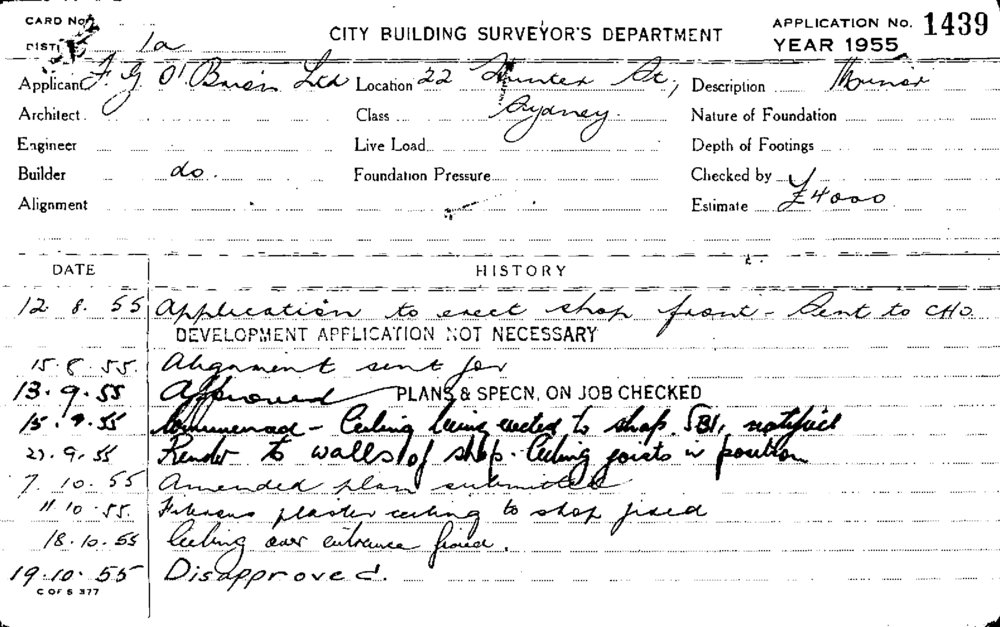 CARD No.
CITY BUILDING SURVEYOR'S DEPARTMENT
APPLICATION No. 1439
DIST. 1a
YEAR 1955
Applicant F. G O'Brien Ltd Location 22 Hunter St, Description Minor
Architect. Class Sydney. Nature of Foundation
Engineer Live Load Depth of Footings
Builder do. Foundation Pressure Checked by
Alignment Estimate £4000
DATE HISTORY
12. 8. 55 Application to erect shop front - Sent to CHO
DEVELOPMENT APPLICATION NOT NECESSARY
15. 8. 55. Alignment sent for
13. 9. 55 Approved PLANS & SPECN. ON JOB CHECKED
15. 9. 55 Commenced - Ceiling being erected to shop. notified
9. 55 Render to walls of shop. Ceiling joists in position
7. 10. 55 Amended plan submitted
11. 10. 55. Fibrous plaster ceiling to shop fixed
18. 10. 55 Ceiling over entrance fixed.
19. 10. 55 Disapproved.
C OF S 377